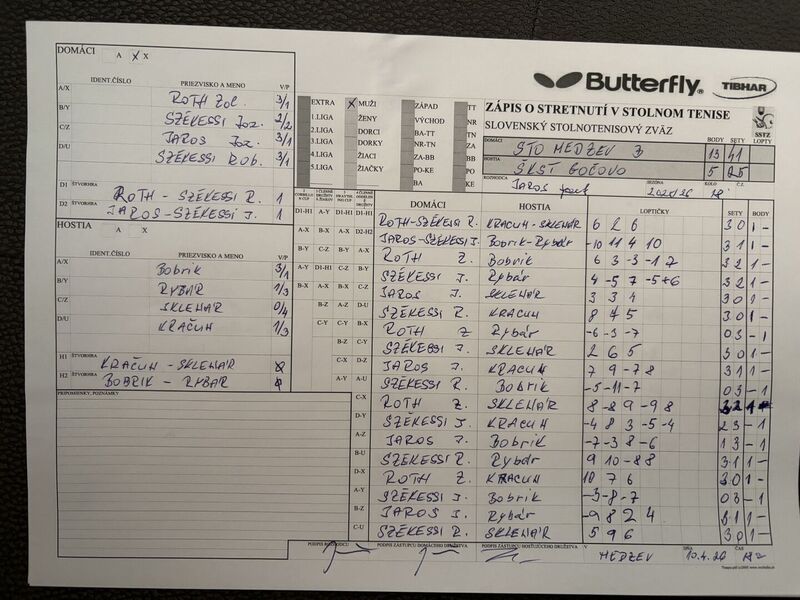 DOMÁCI A X X
IDENT.ČÍSLO PRIEZVISKO A MENO V/P
A/X ROTH Zol. 3/1
B/Y SZÉKESSI Joz. 2/2
C/Z JAROS Joz. 3/1
D/U SZÉKESSI ROB. 3/1
D1 ŠTVORHRA ROTH - SZÉKESSI R. 1
D2 ŠTVORHRA JAROS-SZÉKESSI J. 1
HOSTIA A X
IDENT.ČÍSLO PRIEZVISKO A MENO V/P
A/X Bobrik 3/1
B/Y RYBÁR 1/3
C/Z SKLENÁR 0/4
D/U KRAČUN 1/3
H1 ŠTVORHRA KRAČUN - SKLENÁR
H2 ŠTVORHRA BOBRIK - RYBÁR
PRIPOMIENKY, POZNÁMKY
EXTRA X MUŽI ZÁPAD TT
1.LIGA ŽENY VÝCHOD NR
2.LIGA DORCI BA-TT TN
3.LIGA DORKY NR-TN ZA
4.LIGA ŽIACI ZA-BB BB
5.LIGA ŽIAČKY PO-KE PO
BA KE
Butterfly TIBHAR
ZÁPIS O STRETNUTÍ V STOLNOM TENISE
SLOVENSKÝ STOLNOTENISOVÝ ZVÄZ
SSTZ
BODY SETY LOPTY
DOMÁCI STO MEDZEV B 13 41
HOSTIA ŠKST GOČOVO 5 25
ROZHODCA JAROS SEZÓNA 2025/26 KOLO Č.Z.
DOMÁCI HOSTIA LOPTIČKY SETY BODY
ROTH-SZÉKESSI R. KRACUN-SKLENÁR 6 2 6 3 0 1 -
JAROS-SZÉKESSI J. Bobrik-Rybár -10 11 4 10 3 1 1 -
ROTH Z. Bobrik 6 3 -3 -1 7 3 2 1 -
SZÉKESSI J. Rybár 4 -5 7 -5 +6 3 2 1 -
JAROS J. SKLENÁR 3 3 4 3 0 1 -
SZÉKESSI R. KRACUN 8 4 5 3 0 1 -
ROTH Z Rybár -6 -3 -7 0 3 - 1
SZÉKESSI J. SKLENÁR 2 6 5 3 0 1 -
JAROS J. KRACUN 7 9 -7 8 3 1 1 -
SZÉKESSI R. Bobrik -5 -11 -7 0 3 - 1
ROTH Z. SKLENÁR 8 -8 9 -9 8 3 2 1 -
SZÉKESSI J KRACUN -4 8 3 -5 -4 2 3 - 1
JAROS J. Bobrik -7 -3 8 -6 1 3 - 1
SZÉKESSI R. Rybár 9 10 -8 8 3 1 1 -
ROTH Z. KRACUN 10 7 6 3 0 1 -
SZÉKESSI J. Bobrik -3 -8 -7 0 3 - 1
JAROS J. Rybár -9 8 2 4 3 1 1 -
SZÉKESSI R. SKLENÁR 5 9 6 3 0 1 -
PODPIS ROZHODCU PODPIS ZÁSTUPCU DOMÁCEHO DRUŽSTVA PODPIS ZÁSTUPCU HOSŤUJÚCEHO DRUŽSTVA V MEDZEV DŇA 10.4.26 ČAS